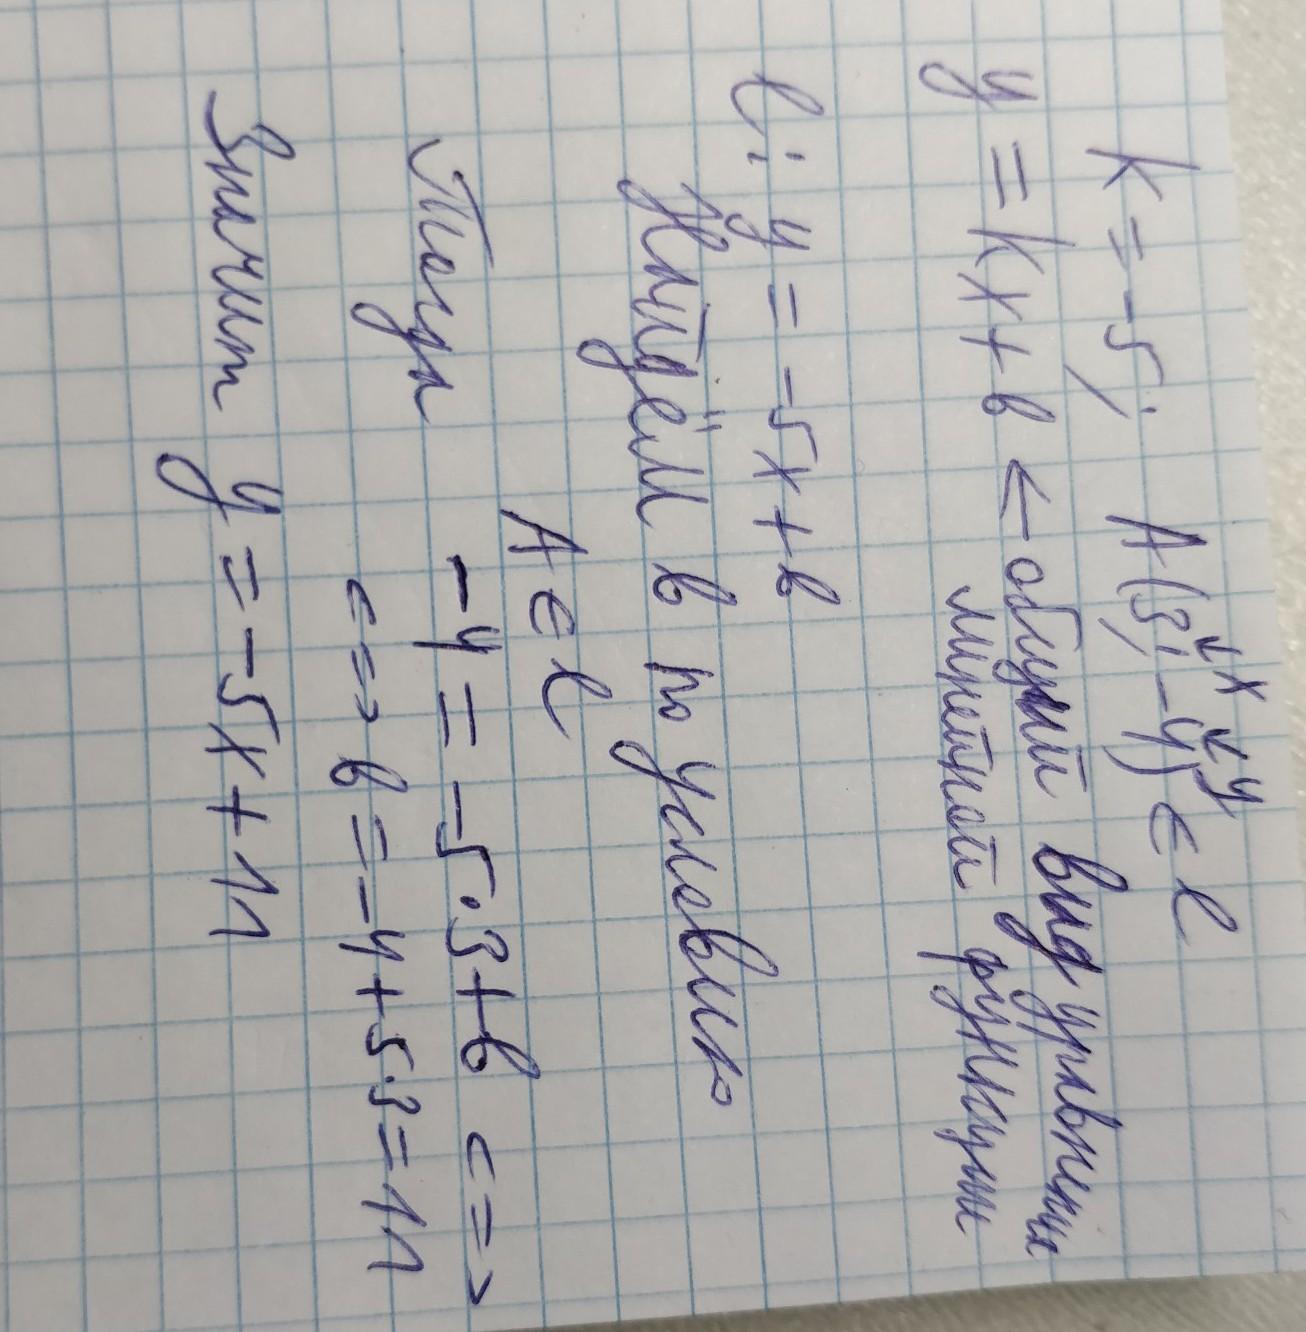 k = -5; A(3; -4) ∈ l
↙x ↙y
y = kx + b ← общий вид уравнения
линейной функции
l: y = -5x + b
Найдём b по условию
A ∈ l
Тогда -4 = -5·3 + b <=>
<=> b = -4 + 5·3 = 11
Значит y = -5x + 11